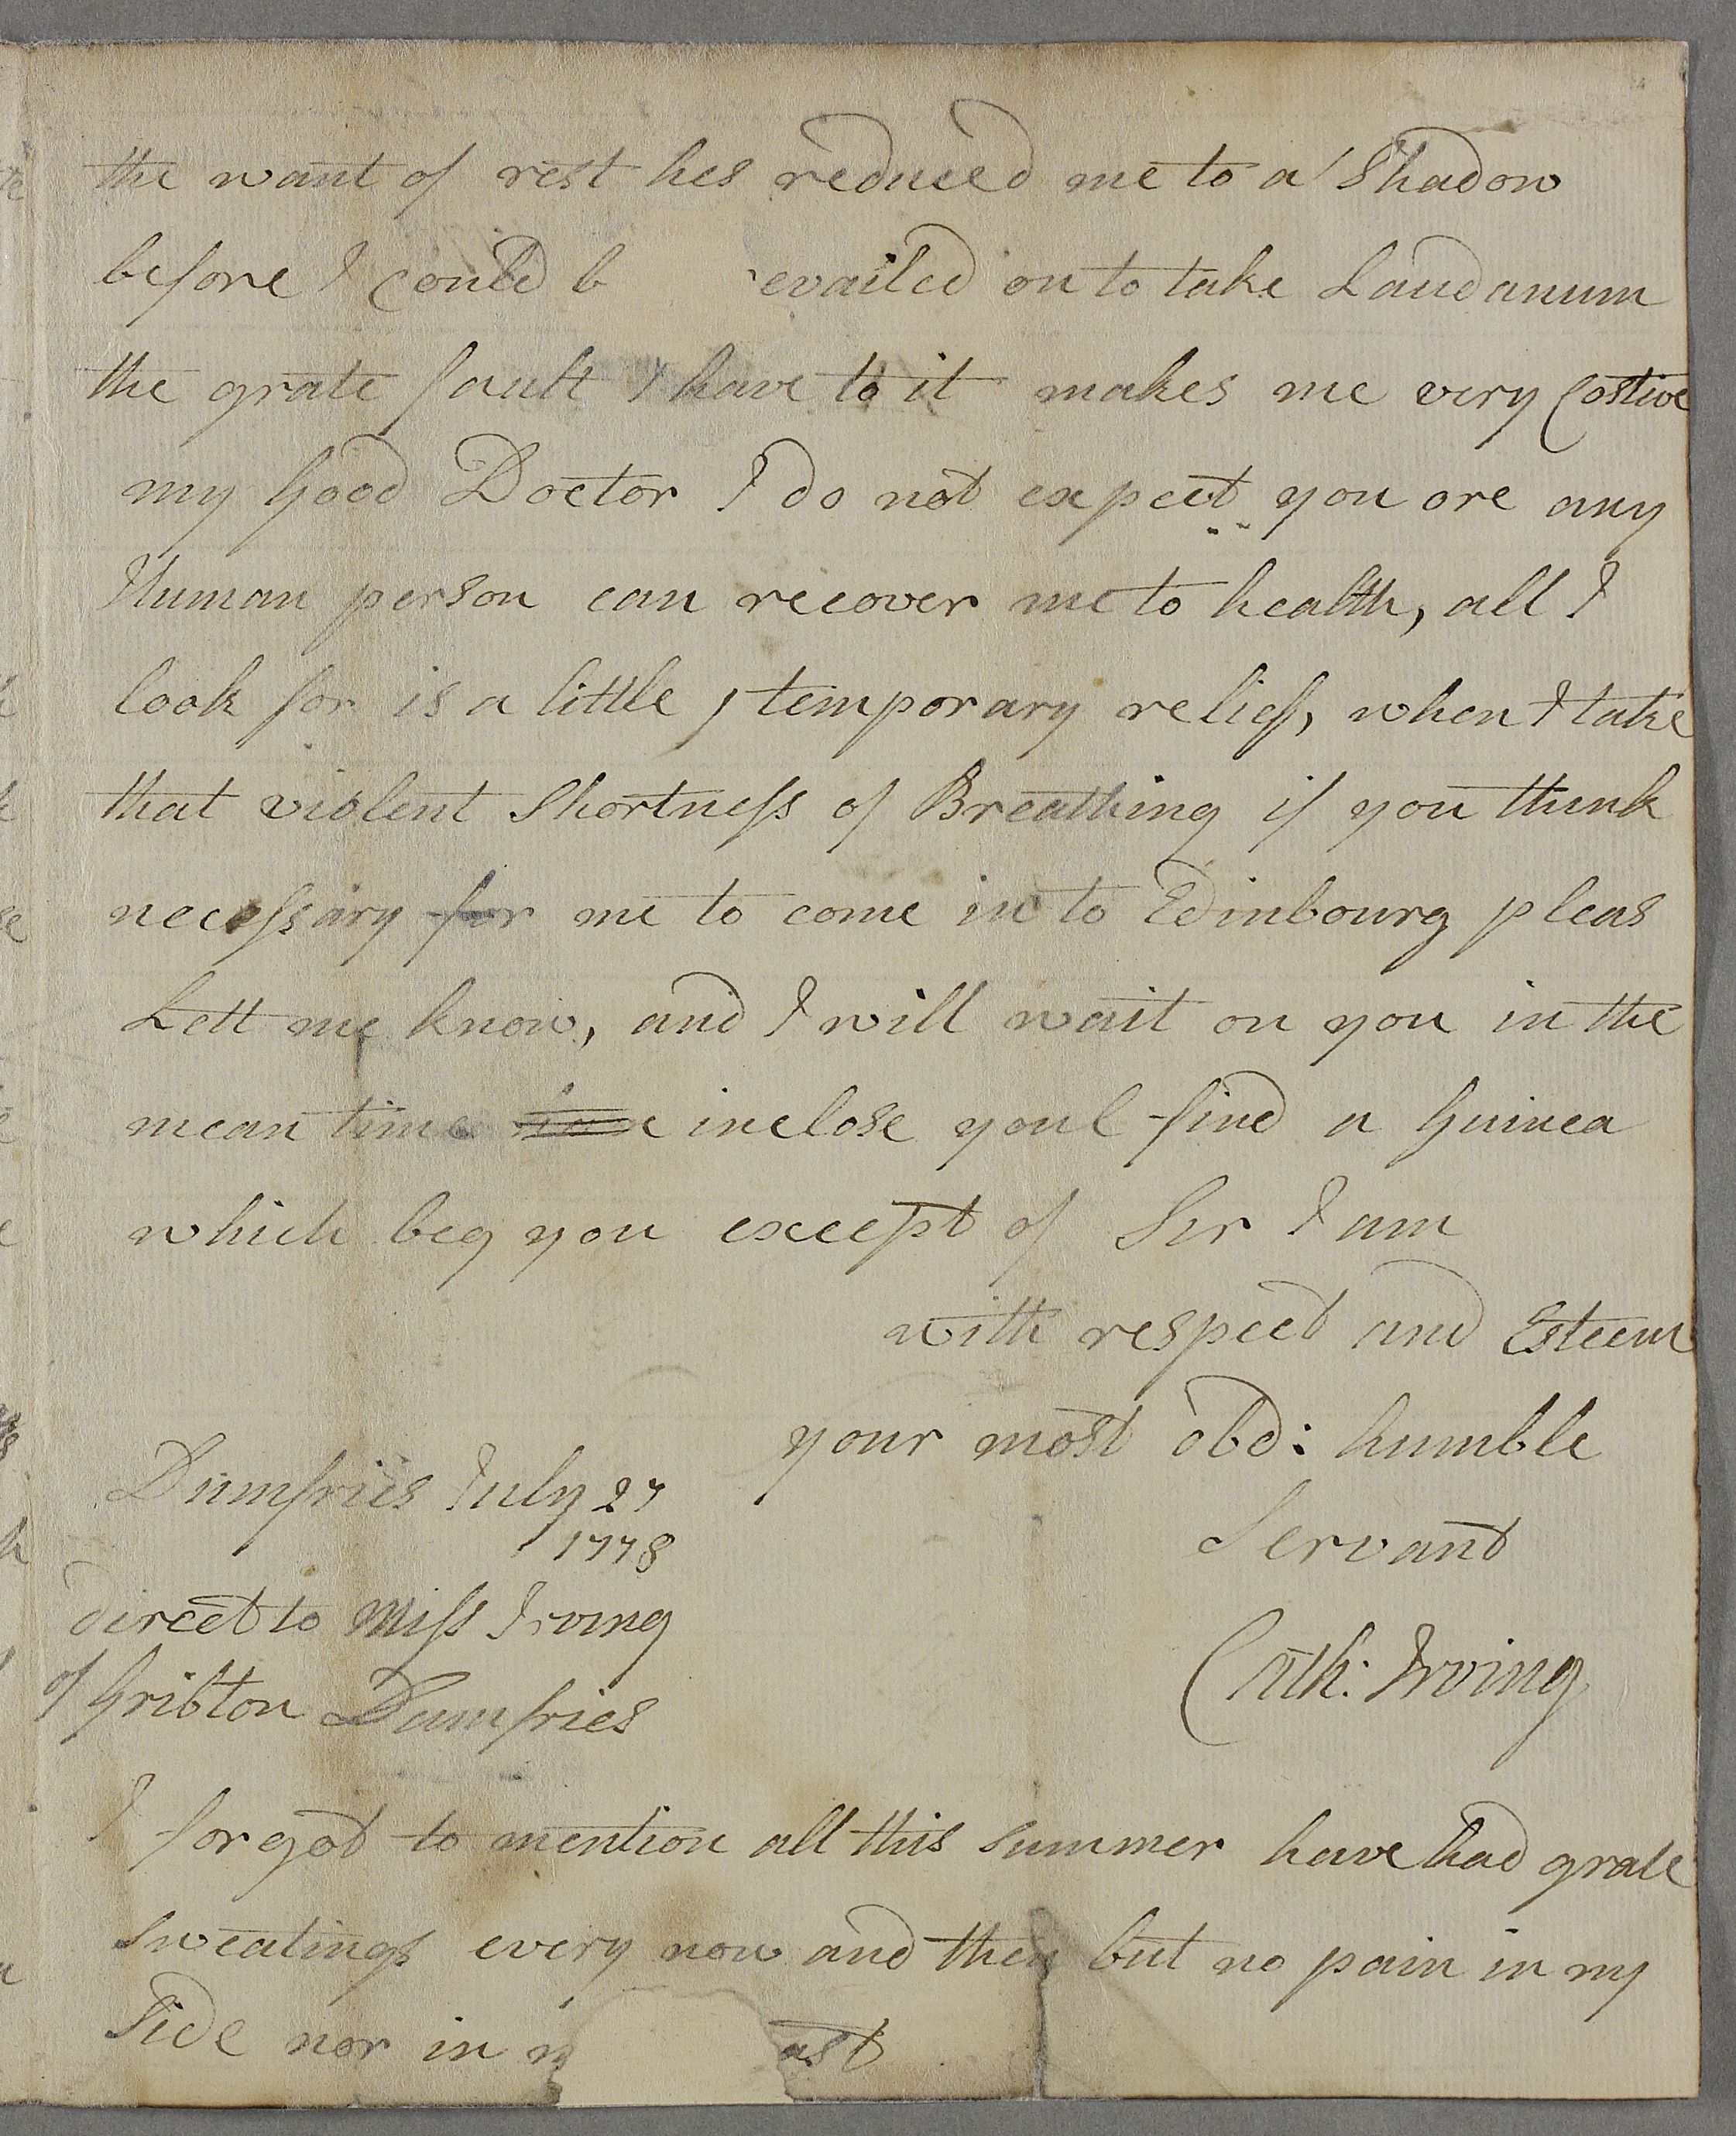 the want of rest hes reduced me to a Shadow
before I could b evailed on to take Laudanum
the grate fault I have to it makes me very Costive
my Good Doctor I do not expect you ore any
Human person can recover me to health, all I
look for is a little temporary relieff, when I take
that violent Shortness of Breathing if you think
necessary for me to come in to Edinbourg pleas
Lett me know, and I will wait on you in the
mean time inclose youl find a Guinea
which beg you except of Sir I am
with respect and Esteem
your most obd: humble
Servant
Cath: Irving
Dumfries July 27
1778
direct to Miss Irving
of Gribton Dumfries
I forgot to mention all this Summer have had grate
Sweatings every now and then but no pain in my
Side nor in m ast